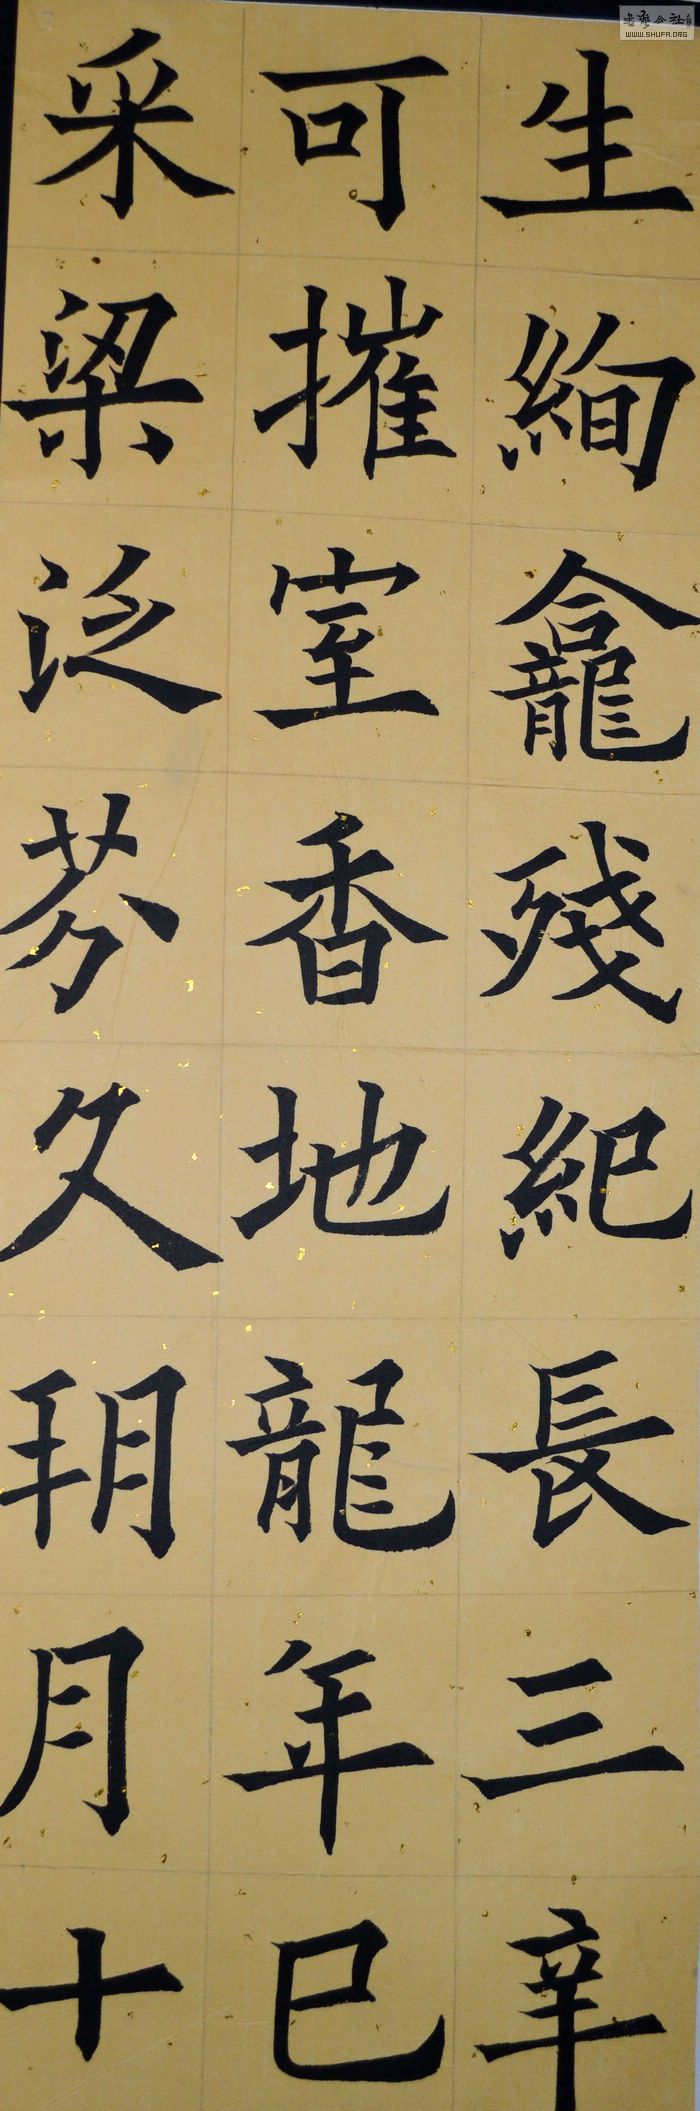 生絢龕殘紀長三辛
可摧室香地龍年巳
采梁泛芬久玥月十
书法公社
WWW.SHUFA.ORG